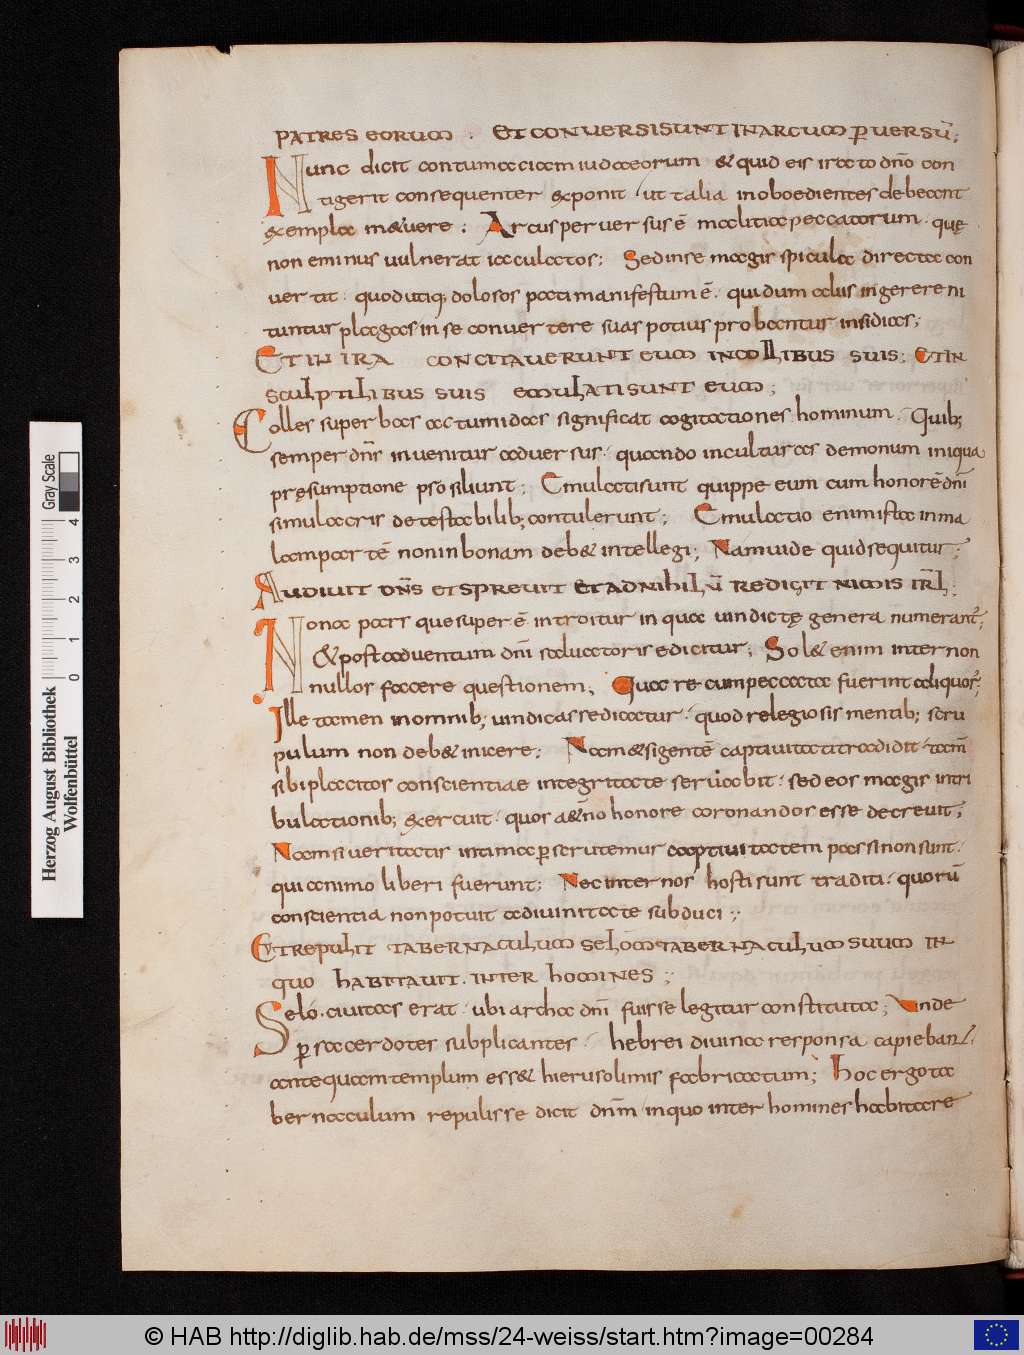 PATRES EORUM . ET CONVERSI SUNT IN ARCUM PVERSŪ;
Nunc dicit contumaciam iudaeorum & quid eis irato dn̄o con
tigerit consequenter exponit · ut talia inoboedientes debeant
exempla metuere : Arcus perversus ē malitia peccatorum · quę
non eminus vulnerat iaculatos; Sed in se magis spicula directa con
vertit · quod utiq; dolosos pati manifestum ē · qui dum aliis ingerere ni
tuntur plagas in se convertere suas potius probantur insidias;
ET IN IRA CONCITAVERUNT EUM IN COLLIBUS SUIS; ET IN
SCULPTILIBUS SUIS EMULATI SUNT EUM;
Colles superbas ac tumidas significat cogitationes hominum · Quib;
semper dn̄s invenitur adversus · quando in culturas demonum iniqua
pręsumptione prosiliunt; Emulati sunt quippe eum cum honorē dn̄i
simulacris detestabilib; contulerunt; Emulatio enim ista in ma
lam partē non in bonam deb& intellegi; Nam vide quid sequitur;
AUDIVIT DN̄S ET SPREVIT ET AD NIHILŪ REDIGIT NIMIS IRL̄;
Nona pars que super ē introitur in qua vindictę genera numerant̄;
& post adventum dn̄i salvatoris edicitur; Sol& enim inter non
nullos facere questionem; Qua re cum peccata fuerint aliquor̄;
Ille tamen in omnib; vindicasse dicatur · quod relegiosis mentib; scru
pulum non deb& inicere; Nam & si gentē captivitati tradidit · tam̄
sibi placitos conscientiae integritate servabit · sed eos magis in tri
bulationib; exercuit · quos a&no honore coronandos esse decrevit;
Nam si veritatis intima pscrutemur captivitatem passi non sunt ·
qui animo liberi fuerunt; Nec inter nos hosti sunt traditi · quorū
conscientia non potuit a divinitate subduci ;
ET REPULIT TABERNACULUM SELOM TABERNACULUM SUUM IN
QUO HABITAVIT · INTER HOMINES ;
Seló · civitas erat · ubi archa dn̄i fuisse legitur constituta; Unde
p sacerdotes subplicantes · hebrei divina responsa capieban
antequam templum ess& hierusolimis fabricatum; Hoc ergo ta
bernaculum repulisse dicit dn̄m · in quo inter homines habitare
Herzog August Bibliothek
Wolfenbüttel
0 1 2 3 4
Gray Scale
© HAB http://diglib.hab.de/mss/24-weiss/start.htm?image=00284